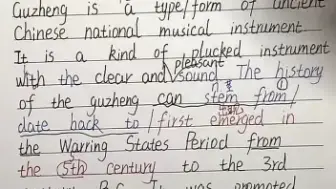 Guzheng is a type/form of ancient
Chinese national musical instrument
It is a kind of plucked instrument
with the clear and pleasant sound The history
of the guzheng can stem from/
date back to/first emerged in
the Warring States Period from
the 5th century to the 3rd
B.C. It was promoted